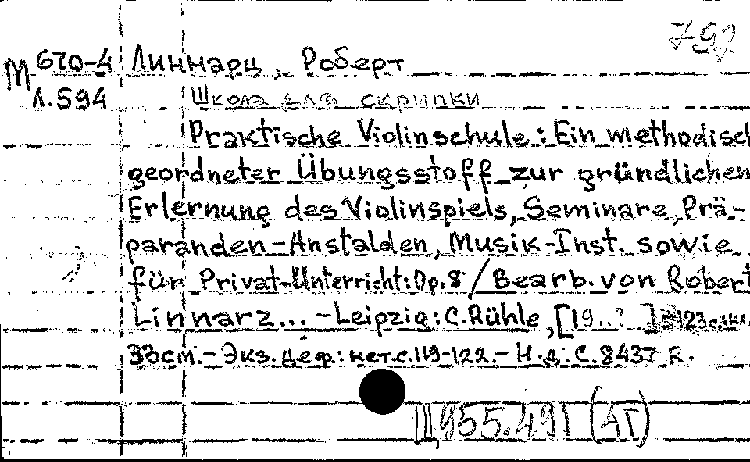 792
М 670-4 Линнарц, Роберт
Л.594 Школа для скрипки
Praktische Violinschule: Ein methodisch
geordneter Übungsstoff zur gründlichen
Erlernung des Violinspiels, Seminare, Prä-
paranden-Anstalden, Musik-Inst. sowie
für Privat-Unterricht: Op. 8 / Bearb. von Robert
Linnarz... - Leipzig: C. Rühle, [19..?]
33 см. - Экз. деф.: нет с. 119-122. - Н. д.: C. 8437 R.
Ш 955.491 (АТ)